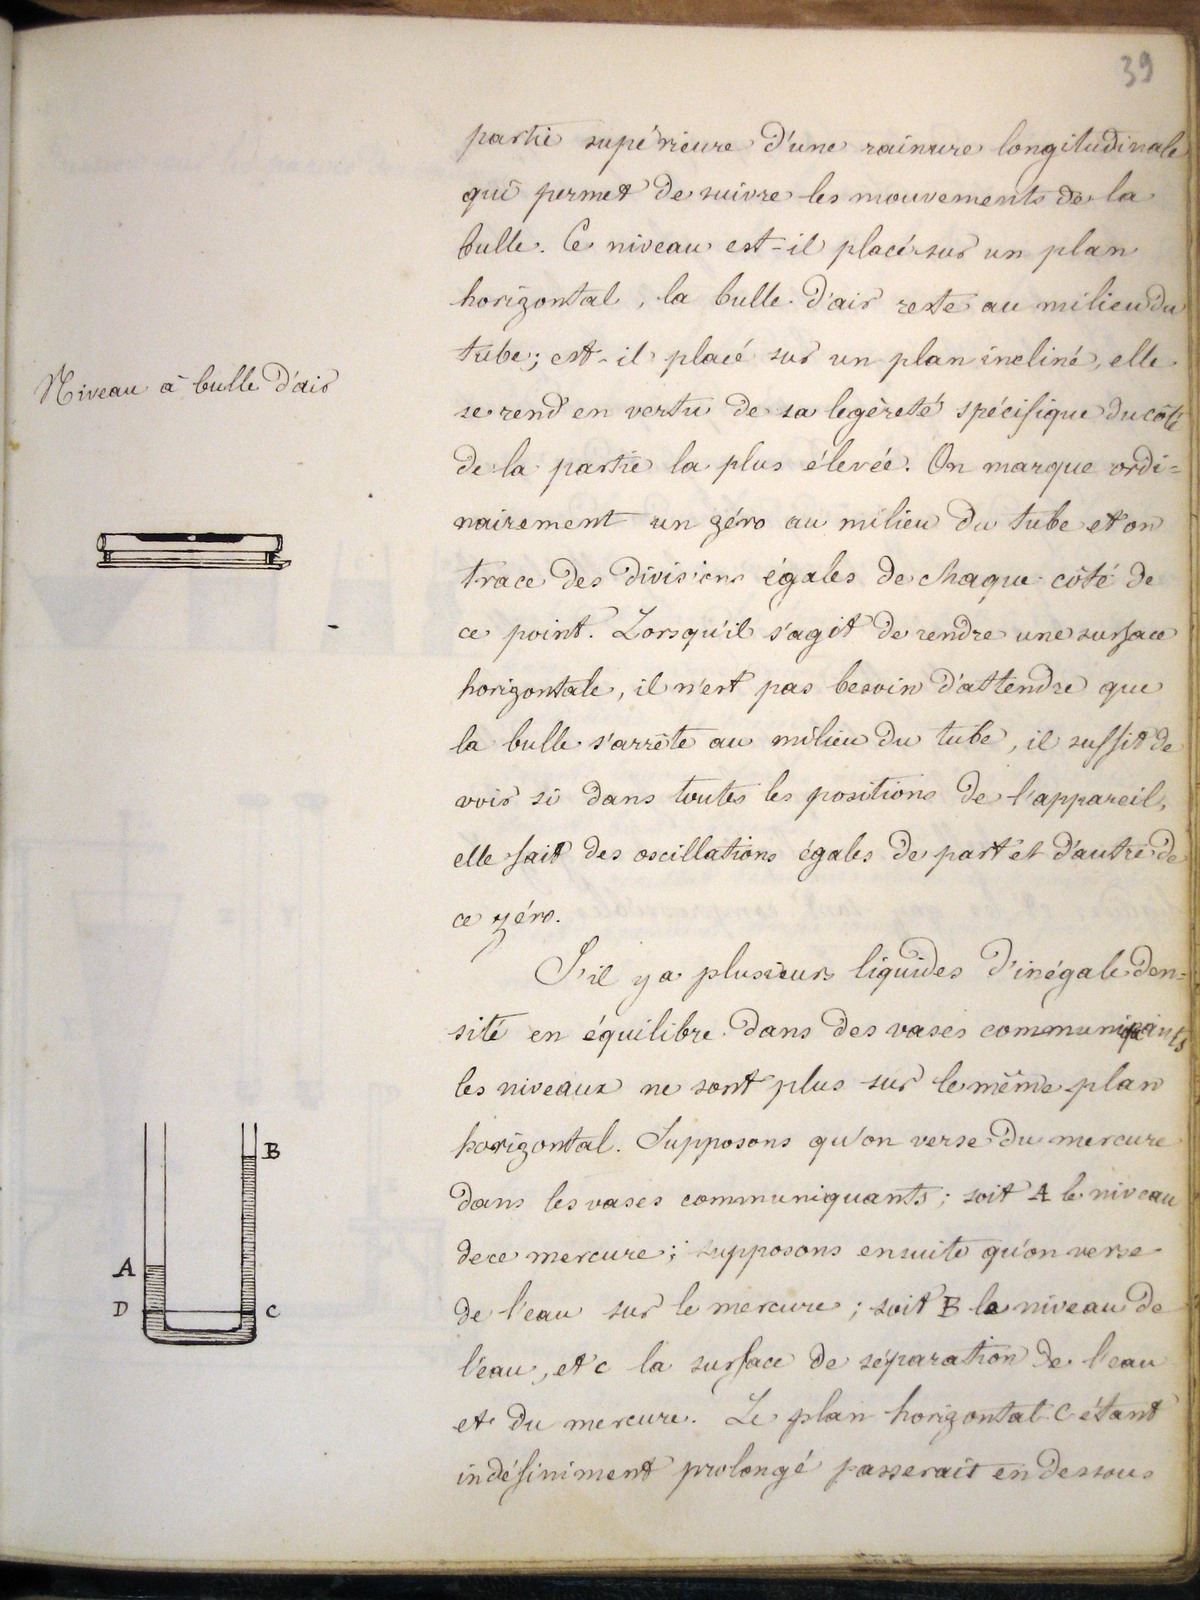 39
partie supérieure d'une rainure longitudinale
qui permet de suivre les mouvements de la
bulle. Ce niveau est-il placé sur un plan
horizontal, la bulle d'air reste au milieu du
tube; est-il placé sur un plan incliné, elle
Niveau à bulle d'air
se rend en vertu de sa legèreté spécifique du côté
de la partie la plus élevée. On marque ordi=
nairement un zéro au milieu du tube et on
trace des divisions égales de chaque côté de
ce point. Lorsqu'il s'agit de rendre une surface
horizontale, il n'est pas besoin d'attendre que
la bulle s'arrête au milieu du tube, il suffit de
voir si dans toutes les positions de l'appareil,
elle fait des oscillations égales de part et d'autre de
ce zéro.
S'il y a plusieurs liquides d'inégale den=
sité en équilibre dans des vases communiquants
les niveaux ne sont plus sur le même plan
horizontal. Supposons qu'on verse du mercure
dans les vases communiquants; soit A le niveau
de ce mercure; supposons ensuite qu'on verse
de l'eau sur le mercure; soit B le niveau de
l'eau, et C la surface de séparation de l'eau
et du mercure. Le plan horizontal C étant
indéfiniment prolongé passerait en dessous
B
A
D C